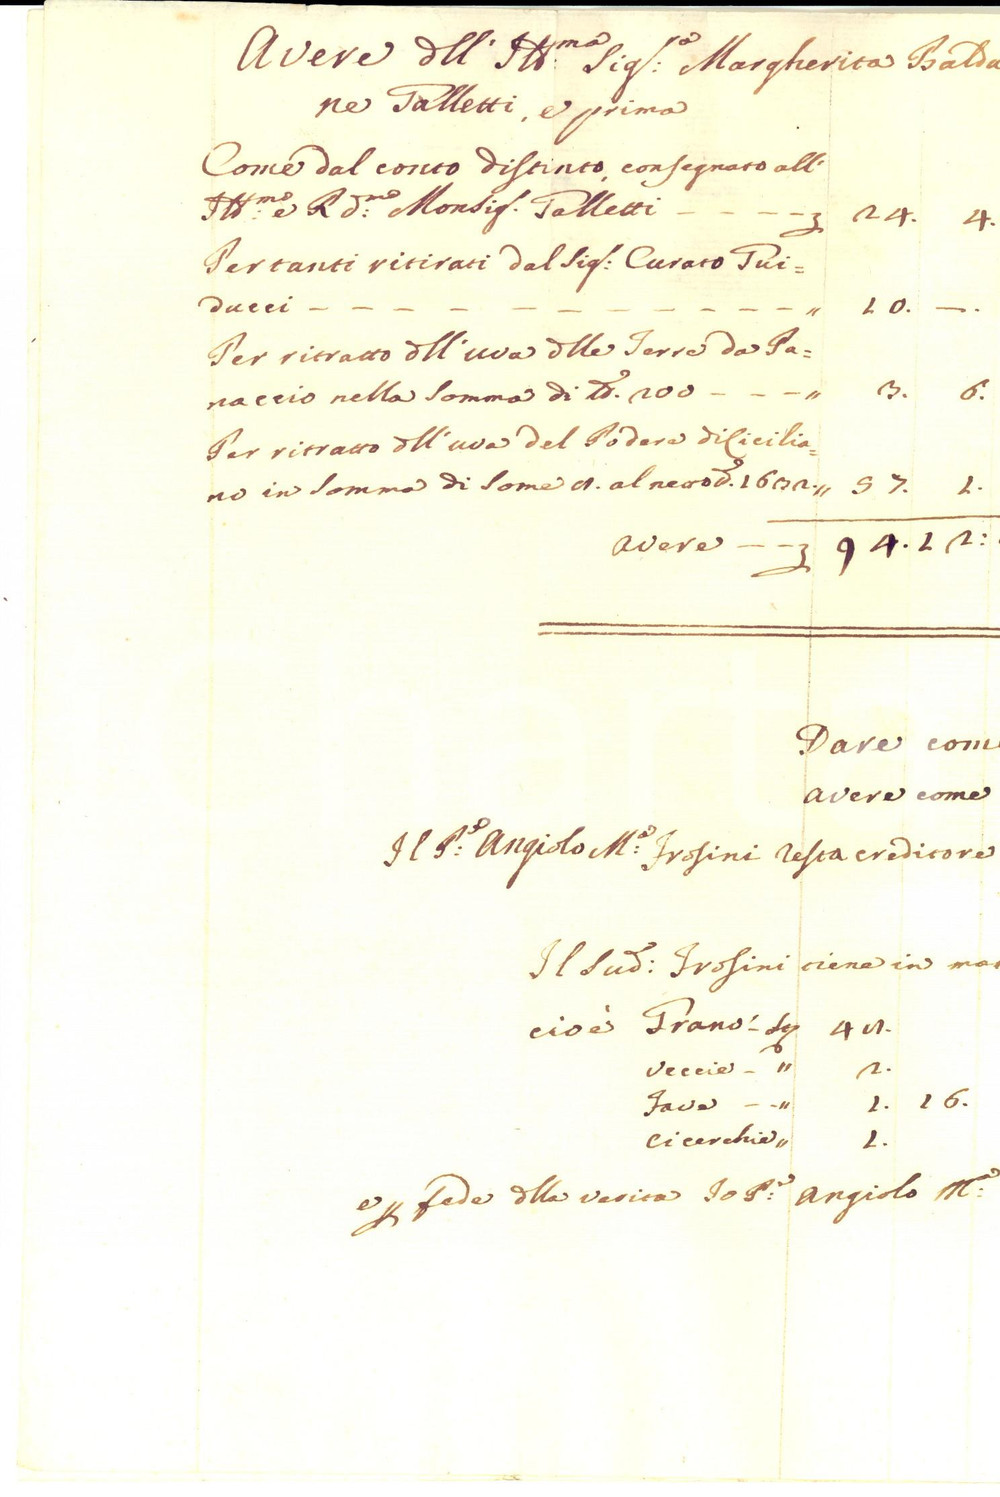 Avere dll' Ill:ma Sig:ra Margherita Balda
ne Galletti, e prima
Come dal conto distinto, consegnato all'
Ill:mo e Rd:mo Monsig:r Galletti - - - - 24. 4.
Per tanti ritirati dal Sig: Curato Gui=
ducci - - - - - - - - - - " 10. -.
Per ritratto dll' uva dlle Terre da Pa=
naccio nella Somma di lb. 200 - - - " 3. 6.
Per ritratto dll' uva del Podere di Cicilia=
no in Somma di Some al netto 1632. " 57. 1.
Avere - - 94. 12:
Dare come
Avere come
Il P:e Angiolo M:a Frosini resta creditore
Il Sud:o Frosini tiene in man
cioè Grano - 
veccie - " 2.
Fave - - " 1. 16.
Cicerchie " 1.
e p fede dlla verità Io P:e Angiolo M:a